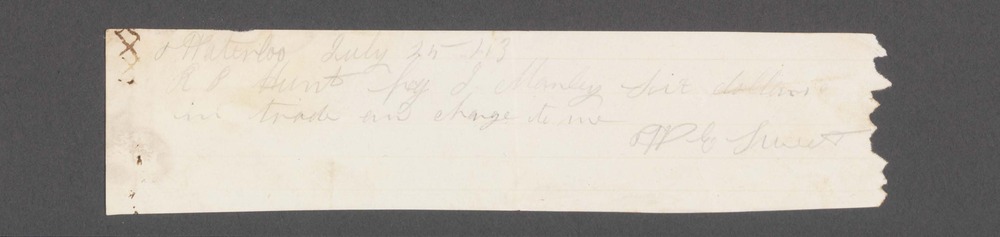 Waterloo July 25-43
R P Hunt pay J. Manley six dollars
in trade and charge to me
W C Sweet